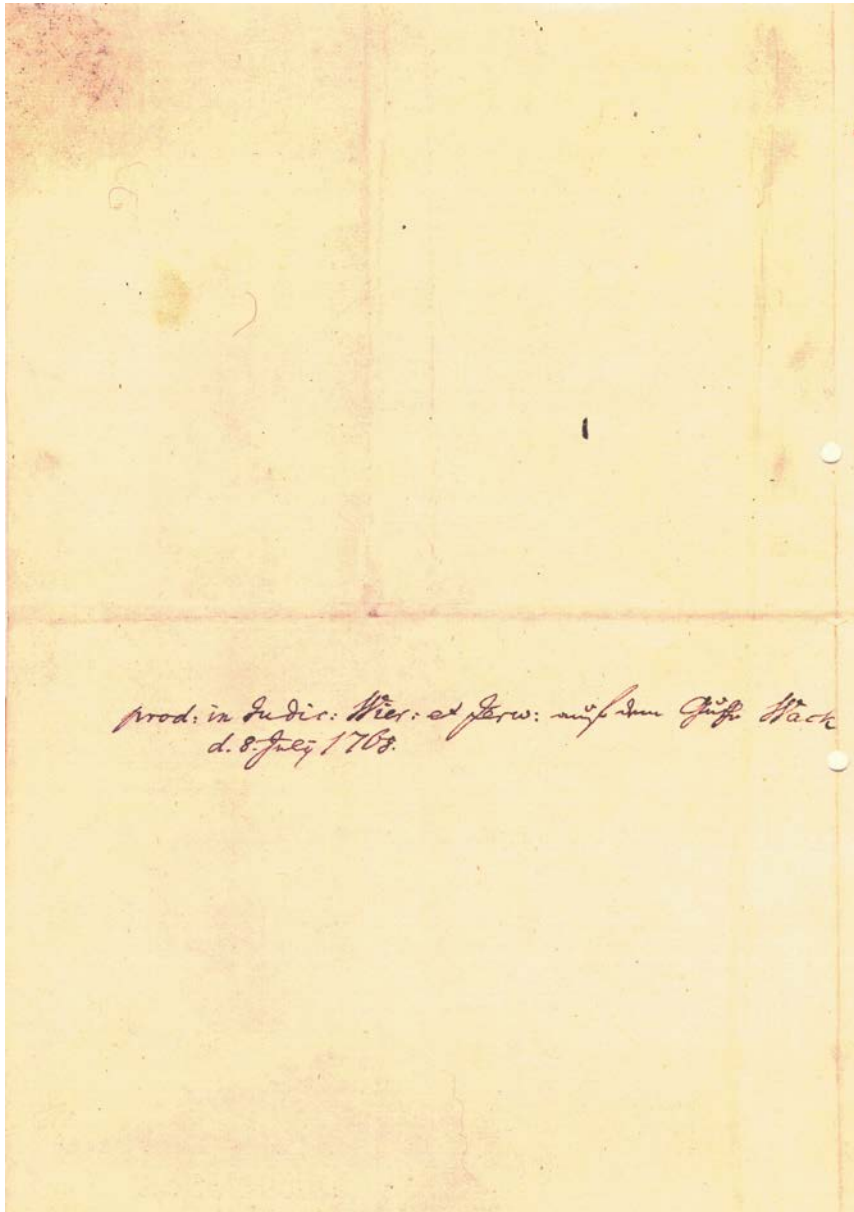 prod: in Judic: Wier: et Jerw: auf dem Guthe Wack
d. 8. July 1768.